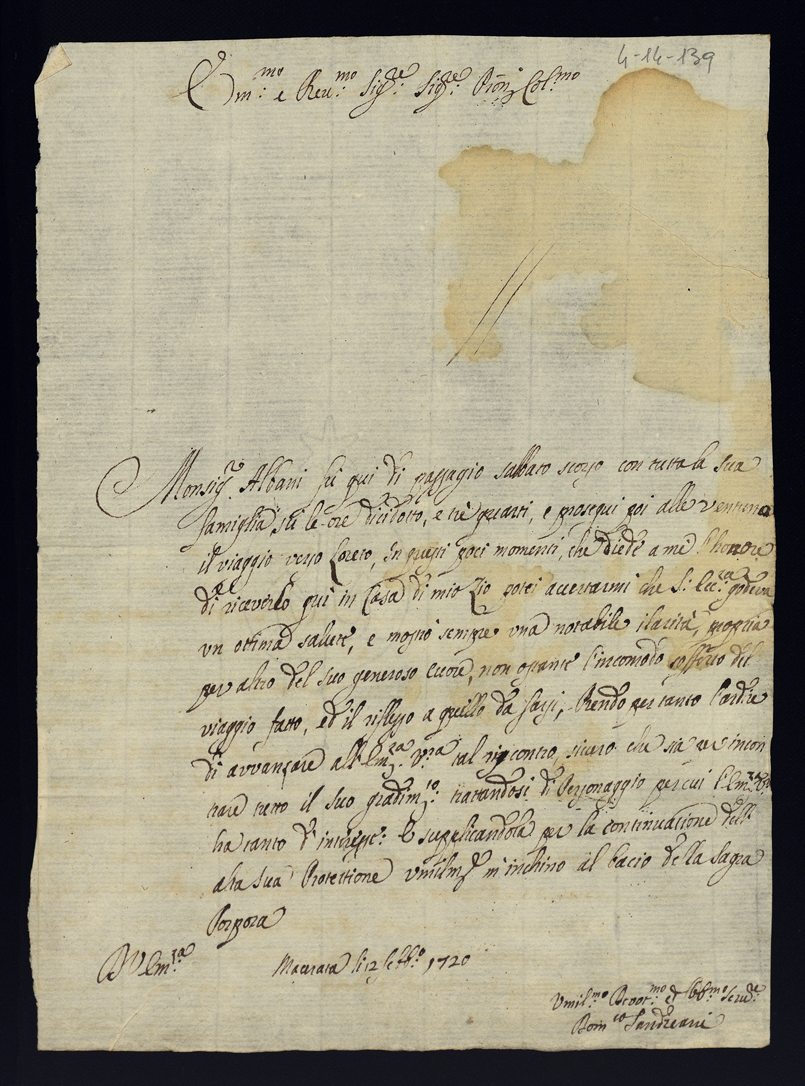 4-14-139
Em:mo e Reu:mo Sigre: Sigre: Pron Col:mo
Monsigr. Albani fù qui di passagio sabbato scorso con tutta la sua
famiglia sù le ore diciotto, e trè quarti, e proseguì poi alle ventuna
il viaggio verso Loreto, In questi poci momenti, che diede a me l'honore
di riceverlo quì in Casa di mio Zio potei accertarmi che S: Ecc:za godeva
vn ottima salute, e mostrò sempre vna notabile ilarità, propria
per altro del suo generoso cuore, non ostante l'incomodo sofferto del
viaggio fatto, ed il riflesso a quello da farsi, Rendo per tanto l'ardire
di avvanzare all'Em:za V:ra tal riscontro, sicuro che sia per incon
trare tutto il suo gradim:to: trattandosi di Personaggio per cui l'Em:za V:ra
ha tanto d'interess: E supplicandola per la continuatione dell'
alta sua Protettione vmilm:e m'inchino al bacio della Sagra
Porpora
D V Em:za
Macerata li 12 Sett:bro 1720
Vmil:mo Deuot:mo et Obb:mo Seru:re
Dom:co